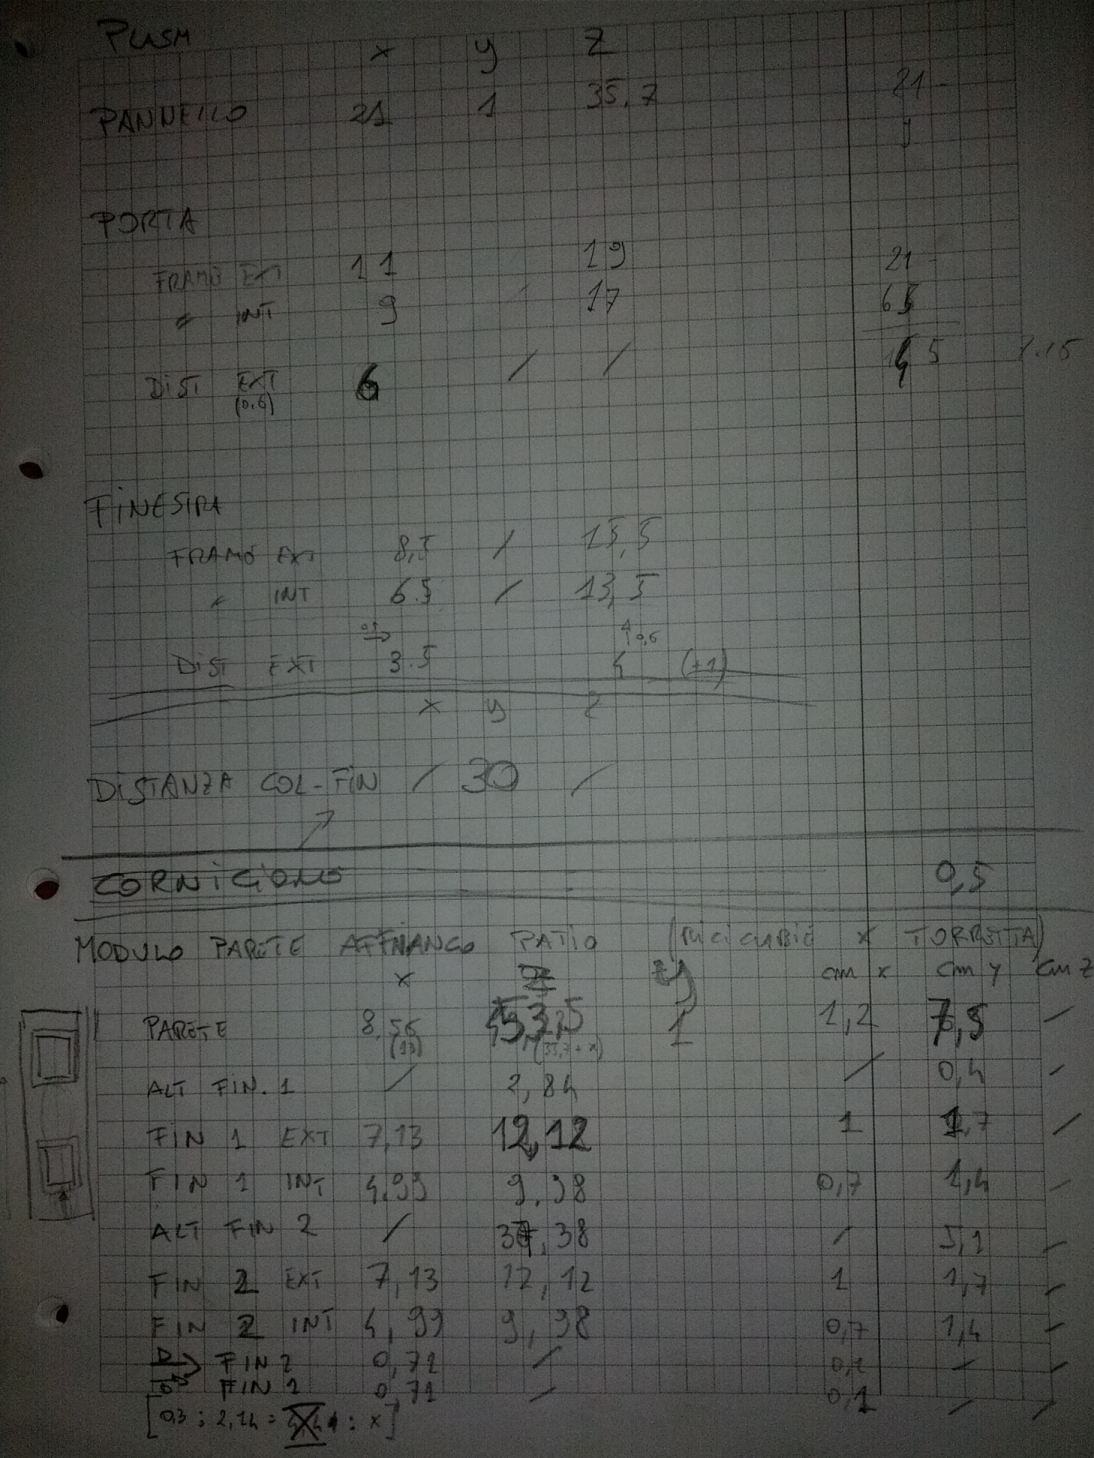 PUSM x y z
PANNELLO 21 1 35,7 21
PORTA
FRAME EXT 11 19 21
" INT 9 17 6 5
DIST EXT 6 / /
(0,6)
FINESTRA
FRAME EXT 8,5 / 15,5
" INT 6.5 / 13,5
DIST EXT 3.5 4 (+1)
x y z
DISTANZA COL-FIN / 30 /
CORNICIONE 0,5
MODULO PARETE AFFIANCO PATIO x TORRETTA)
x z y cm x cm y cm z
PARETE 8,56 1 1,2 7,5 /
ALT FIN. 1 / 2,84 / 0,4 /
FIN 1 EXT 7,13 12,12 1 1,7 /
FIN 1 INT 4,99 9,98 0,7 1,4 /
ALT FIN 2 / ,38 / 5,1 /
FIN 2 EXT 7,13 12,12 1 1,7 /
FIN 2 INT 4,99 9,98 0,7 1,4 /
FIN 2 0,71 / 0,1 / /
FIN 1 0,71 / 0,1 / /
[0,3 : 2,14 = : x]